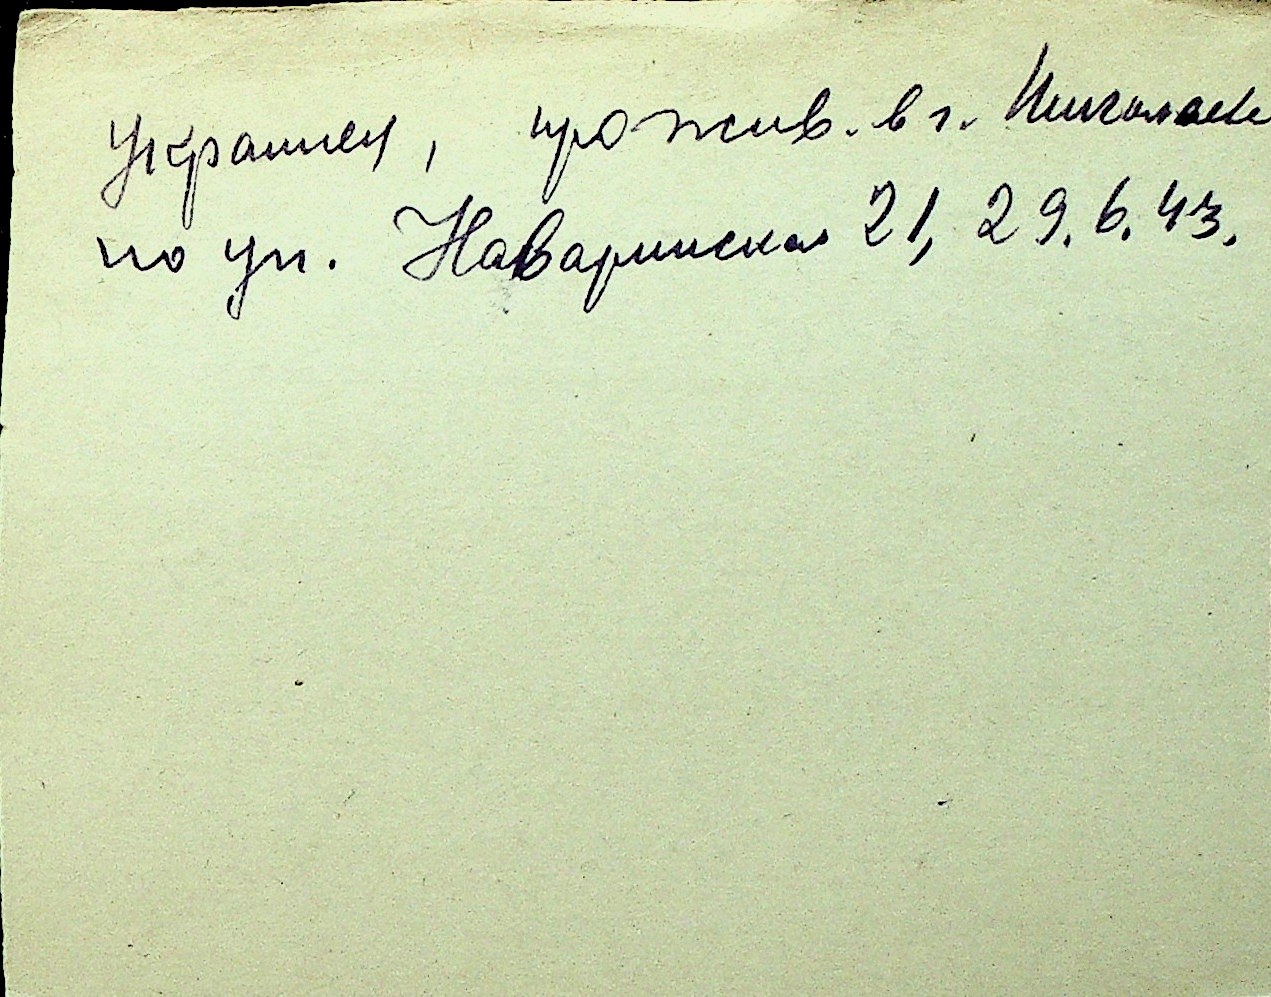 Украинец, прожив. в г. Николаеве
по ул. Наваринская 21, 29.6.43.